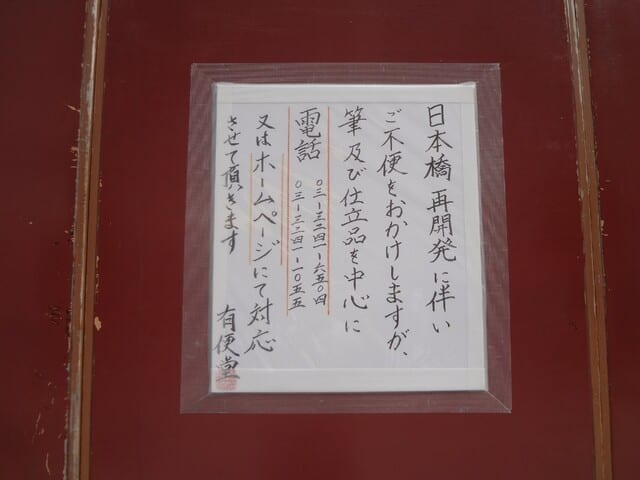 日本橋再開発に伴い
ご不便をおかけしますが、
筆及び仕立品を中心に
電話
〇三-三二四一-六五〇四
〇三-三二四一-一〇五五
又はホームページにて対応
させて頂いきます
有便堂